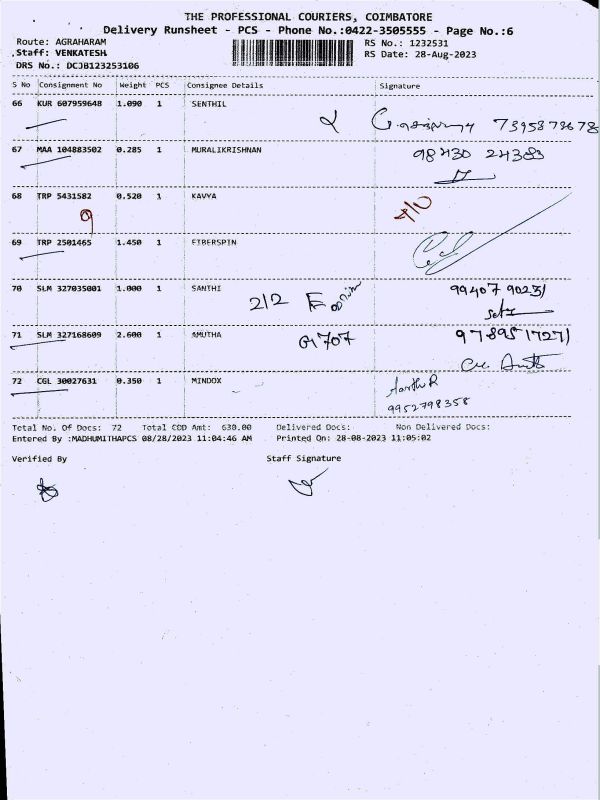 THE PROFESSIONAL COURIERS, COIMBATORE
Delivery Runsheet - PCS - Phone No.:0422-3505555 - Page No.:6
Route: AGRAHARAM RS No.: 1232531
Staff: VENKATESH RS Date: 28-Aug-2023
DRS No.: DCJB123253106
S No Consignment No Weight PCS Consignee Details Signature
66 KUR 607959648 1.090 1 SENTHIL
67 MAA 104883502 0.285 1 MURALIKRISHNAN 98430 24383
68 TRP 5431582 0.520 1 KAVYA
9
69 TRP 2501465 1.450 1 FIBERSPIN
70 SLM 327035001 1.000 1 SANTHI 99407 90231
2/2
71 SLM 327168609 2.600 1 AMUTHA 9789517271
72 CGL 30027631 0.350 1 MINDOX
9952798358
Total No. Of Docs: 72 Total COD Amt: 630.00 Delivered Docs: Non Delivered Docs:
Entered By :MADHUMITHAPCS 08/28/2023 11:04:46 AM Printed On: 28-08-2023 11:05:02
Verified By Staff Signature